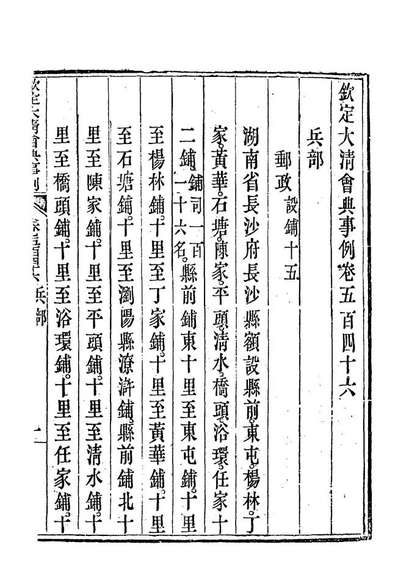 欽定大清會典事例卷五百四十六
兵部
郵政設鋪十五
湖南省長沙府長沙縣額設縣前東屯楊林丁
家黃華石塘陳家平頭清水橋頭浴環任家十
二鋪鋪司一百一十六名縣前鋪東十里至東屯鋪十里
至楊林鋪十里至丁家鋪十里至黃華鋪十里
至石塘鋪十里至瀏陽縣潦滸鋪縣前鋪北十
里至陳家鋪十里至平頭鋪十里至清水鋪十
里至橋頭鋪十里至浴環鋪十里至任家鋪十
欽定大清會典事例 兵部